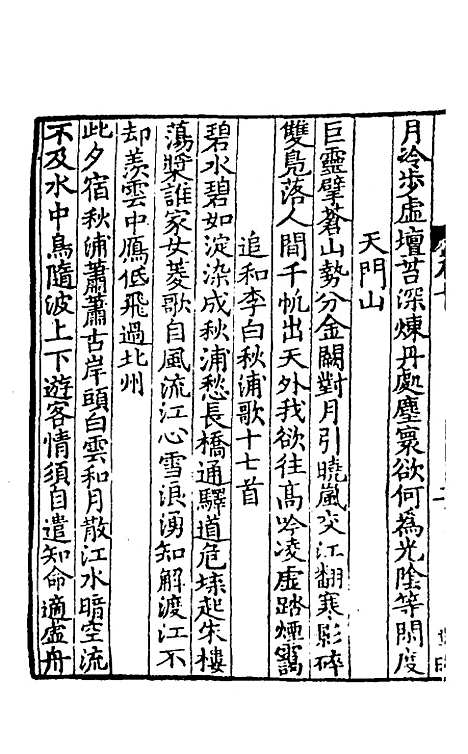 月泠步虛壇苔深煉丹處塵寰欲何為光陰等閒度
天門山
巨靈擘蒼山勢分金闕對月引曉嵐交江翻裵影碎
雙鳧落人間千帆出天外我欲往高吟凌虛踏煙靄
追和李白秋浦歌十七首
碧水碧如淀染成秋浦愁長橋通驛道危埭起朱樓
蕩槳誰家女菱歌自風流江心雪浪湧知解渡江不
却羨雲中鴈低飛過北州
此夕宿秋浦蕭蕭古岸頭白雲和月散江水暗空流
不及水中鳥隨波上下遊客情須自遣知命適虛舟